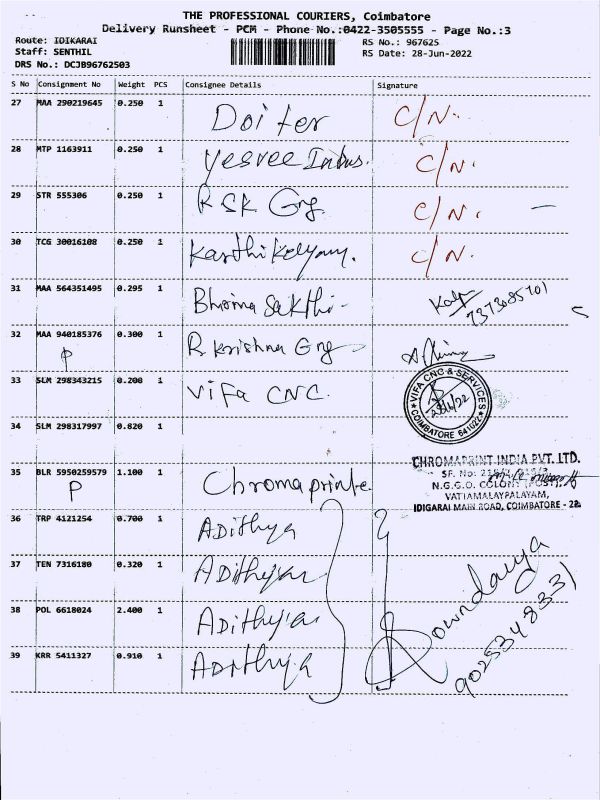 THE PROFESSIONAL COURIERS, Coimbatore
Delivery Runsheet - PCM - Phone No.:0422-3505555 - Page No.:3
Route: IDIKARAI
RS No.: 967625
Staff: SENTHIL
RS Date: 28-Jun-2022
DRS No.: DCJB96762503
S No Consignment No Weight PCS Consignee Details Signature
27 MAA 290219645 0.250 1 Doiter C/N.
28 MTP 1163911 0.250 1 Yesvee Indus. C/N.
29 STR 555306 0.250 1 R SK Eng C/N.
30 TCG 30016108 0.250 1 C/N.
31 MAA 564351495 0.295 1 Bhoma Sakthi 7373085701
32 MAA 940185376 0.300 1 R Krishna Eng
P
33 SLM 298343215 0.200 1 VIFA CNC
VIFA CNC & SERVICES
COIMBATORE 641022
34 SLM 298317997 0.820 1
35 BLR 5950259579 1.100 1 Chromaprinte
P
CHROMAPRINT INDIA PVT. LTD.
SF. No:
N.G.G.O. COLONY (POST),
VATTAMALAYPALAYAM,
IDIGARAI MAIN ROAD, COIMBATORE - 22.
36 TRP 4121254 0.700 1 Adithya
37 TEN 7316180 0.320 1 Adithya
38 POL 6618024 2.400 1 Adithya
39 KRR 5411327 0.910 1 Adithya
Gowndarya
9025348331